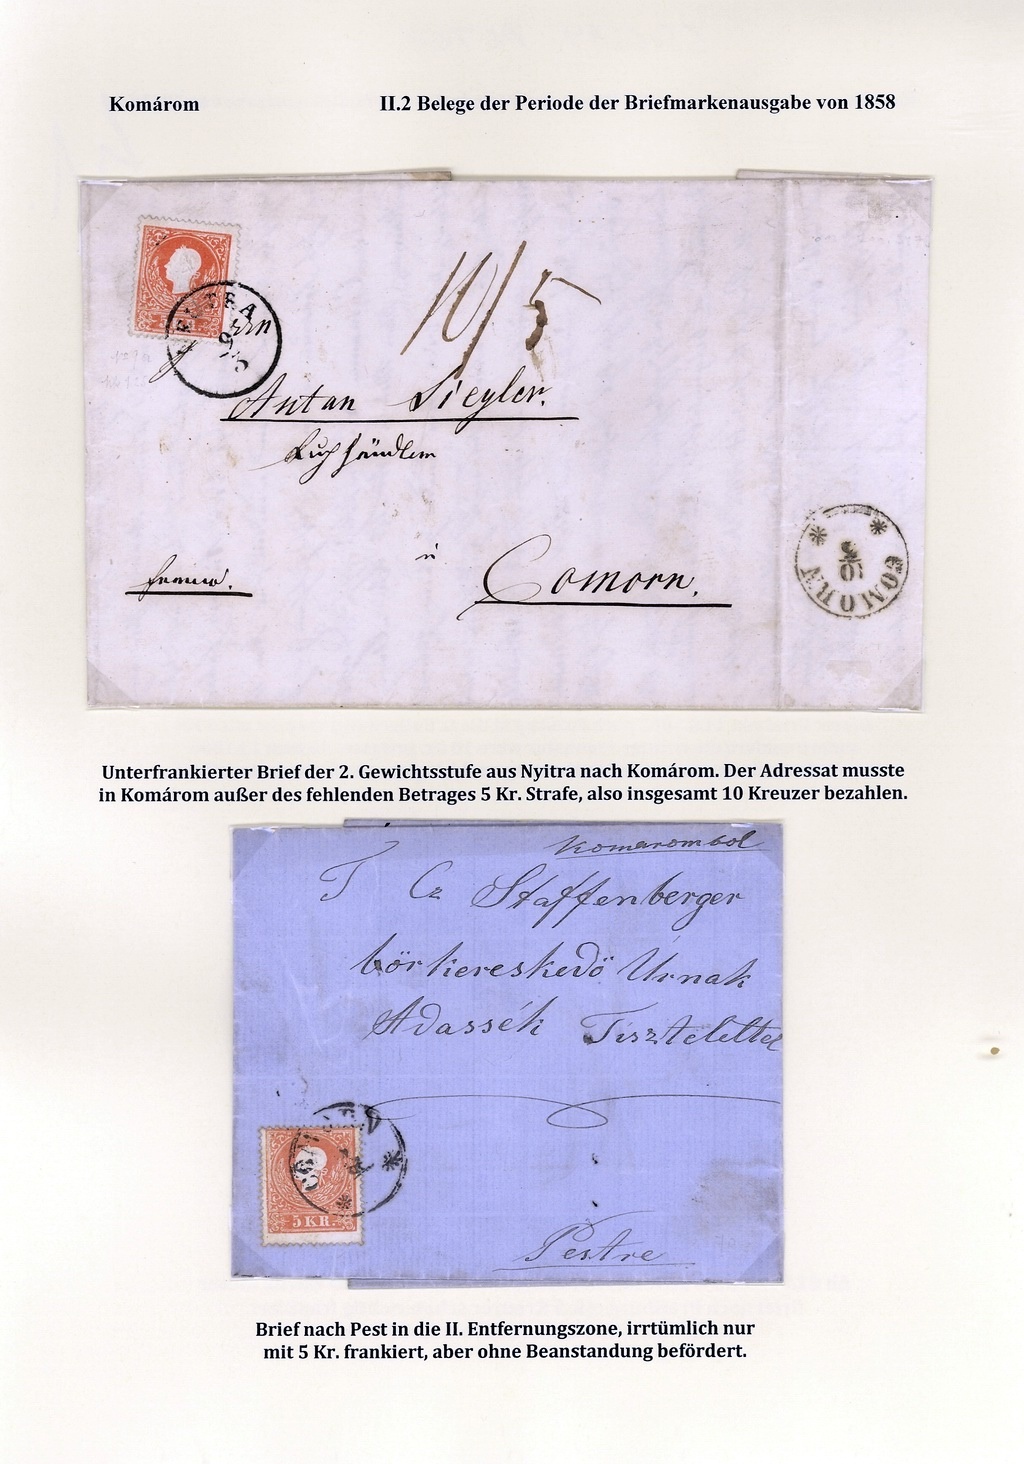 Komárom II.2 Belege der Periode der Briefmarkenausgabe von 1858
10/5
Antan Siegler.
in
Comorn.
franco.
COMORN
Unterfrankierter Brief der 2. Gewichtsstufe aus Nyitra nach Komárom. Der Adressat musste
in Komárom außer des fehlenden Betrages 5 Kr. Strafe, also insgesamt 10 Kreuzer bezahlen.
Komarombol
T Cz Staffenberger
börkereskedö Úrnak
Adassék Tisztelettel
5 KR.
Pestre
Brief nach Pest in die II. Entfernungszone, irrtümlich nur
mit 5 Kr. frankiert, aber ohne Beanstandung befördert.